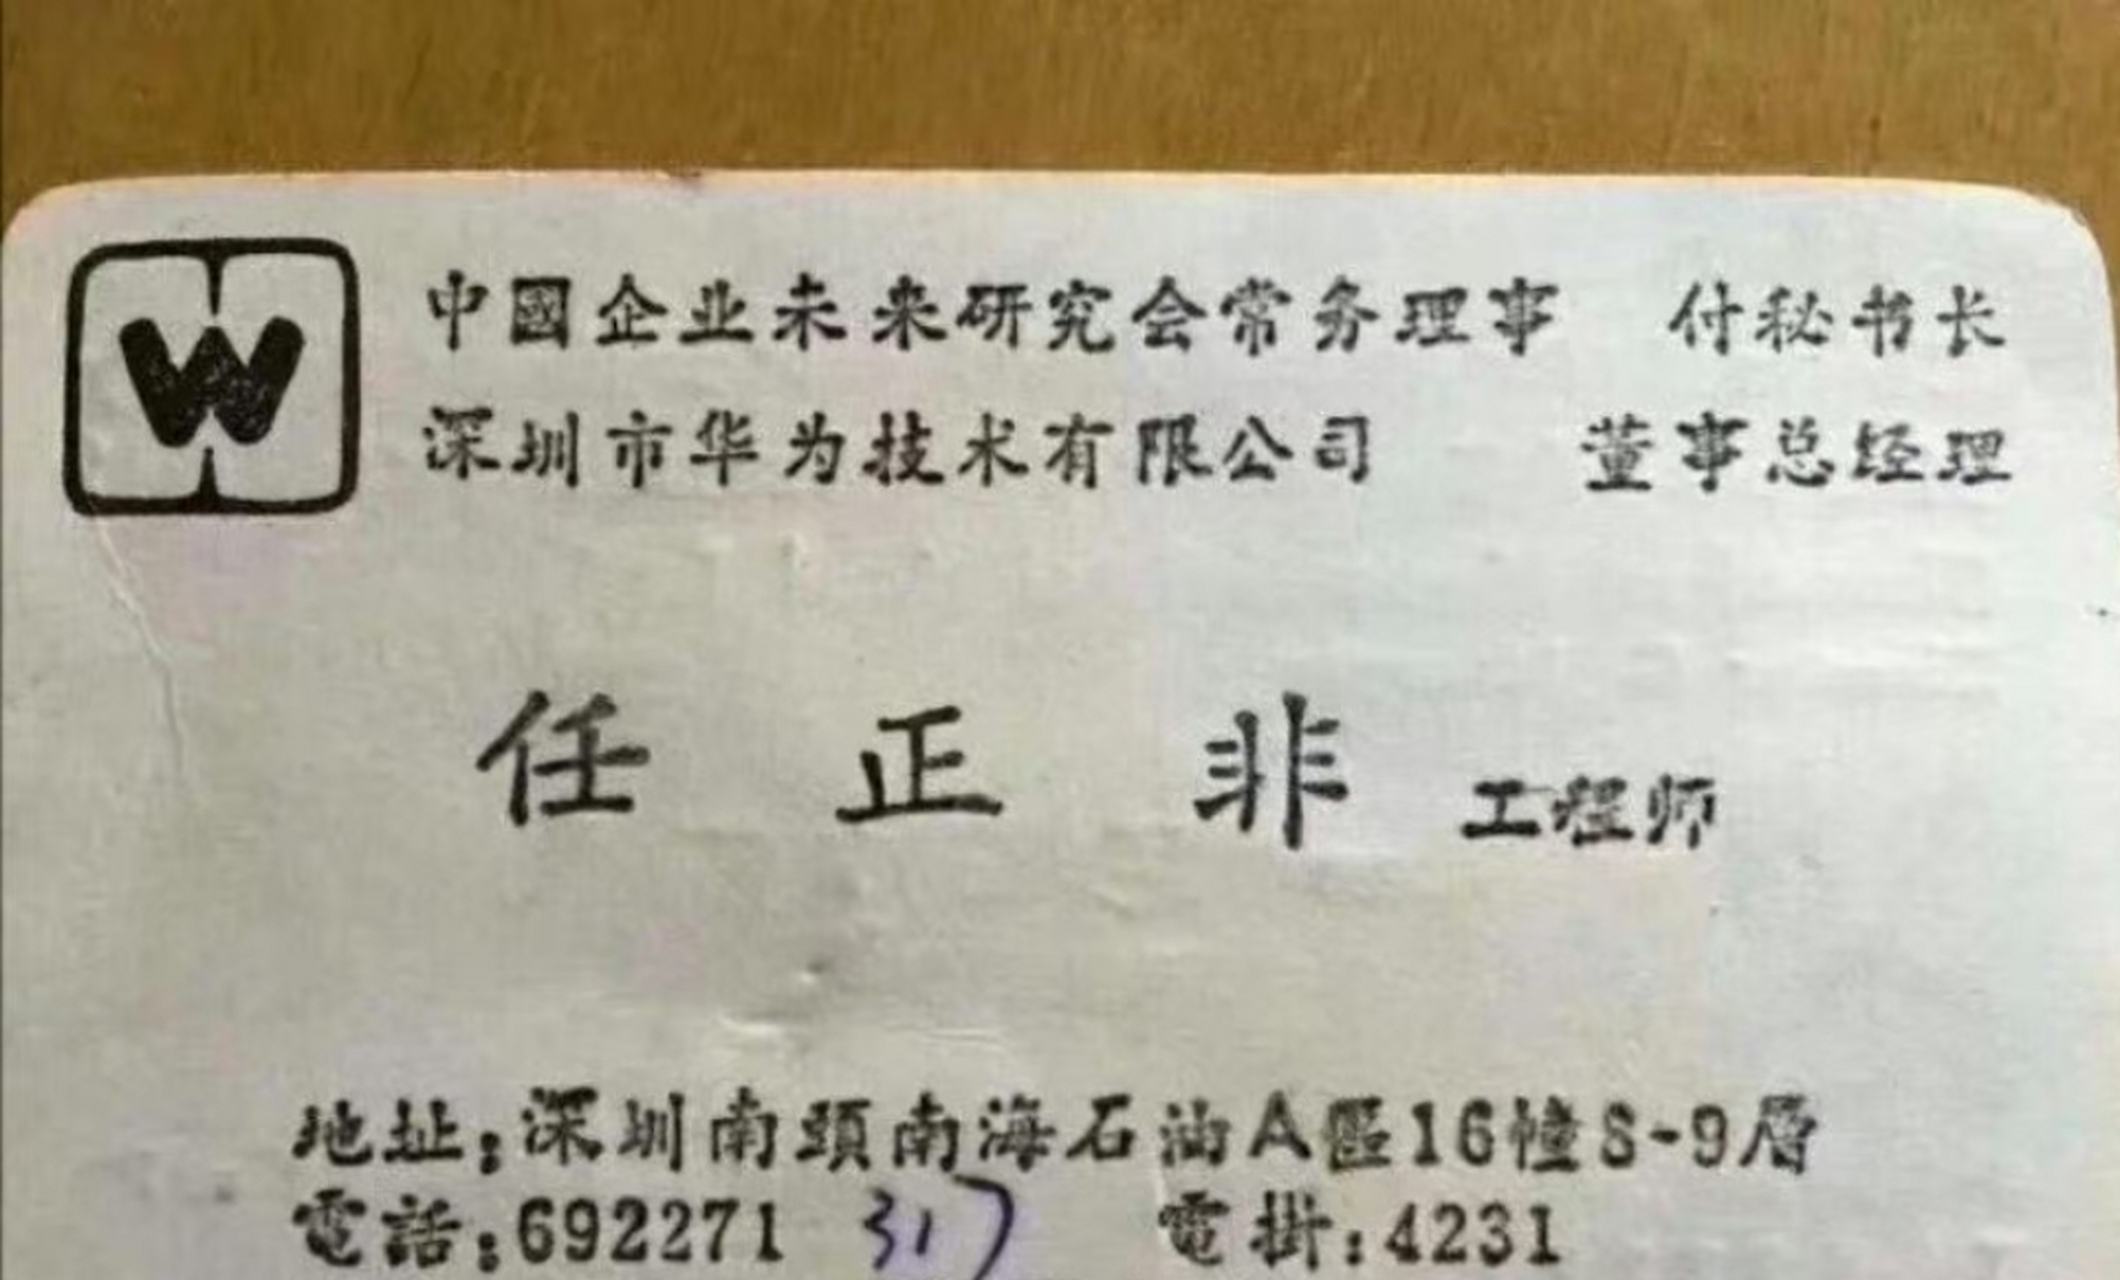 W
中國企业未来研究会常务理事 付秘书长
深圳市华为技术有限公司 董事总经理
任正非 工程师
地址:深圳南頭南海石油A區16幢8-9層
電話:692271 317 電掛:4231